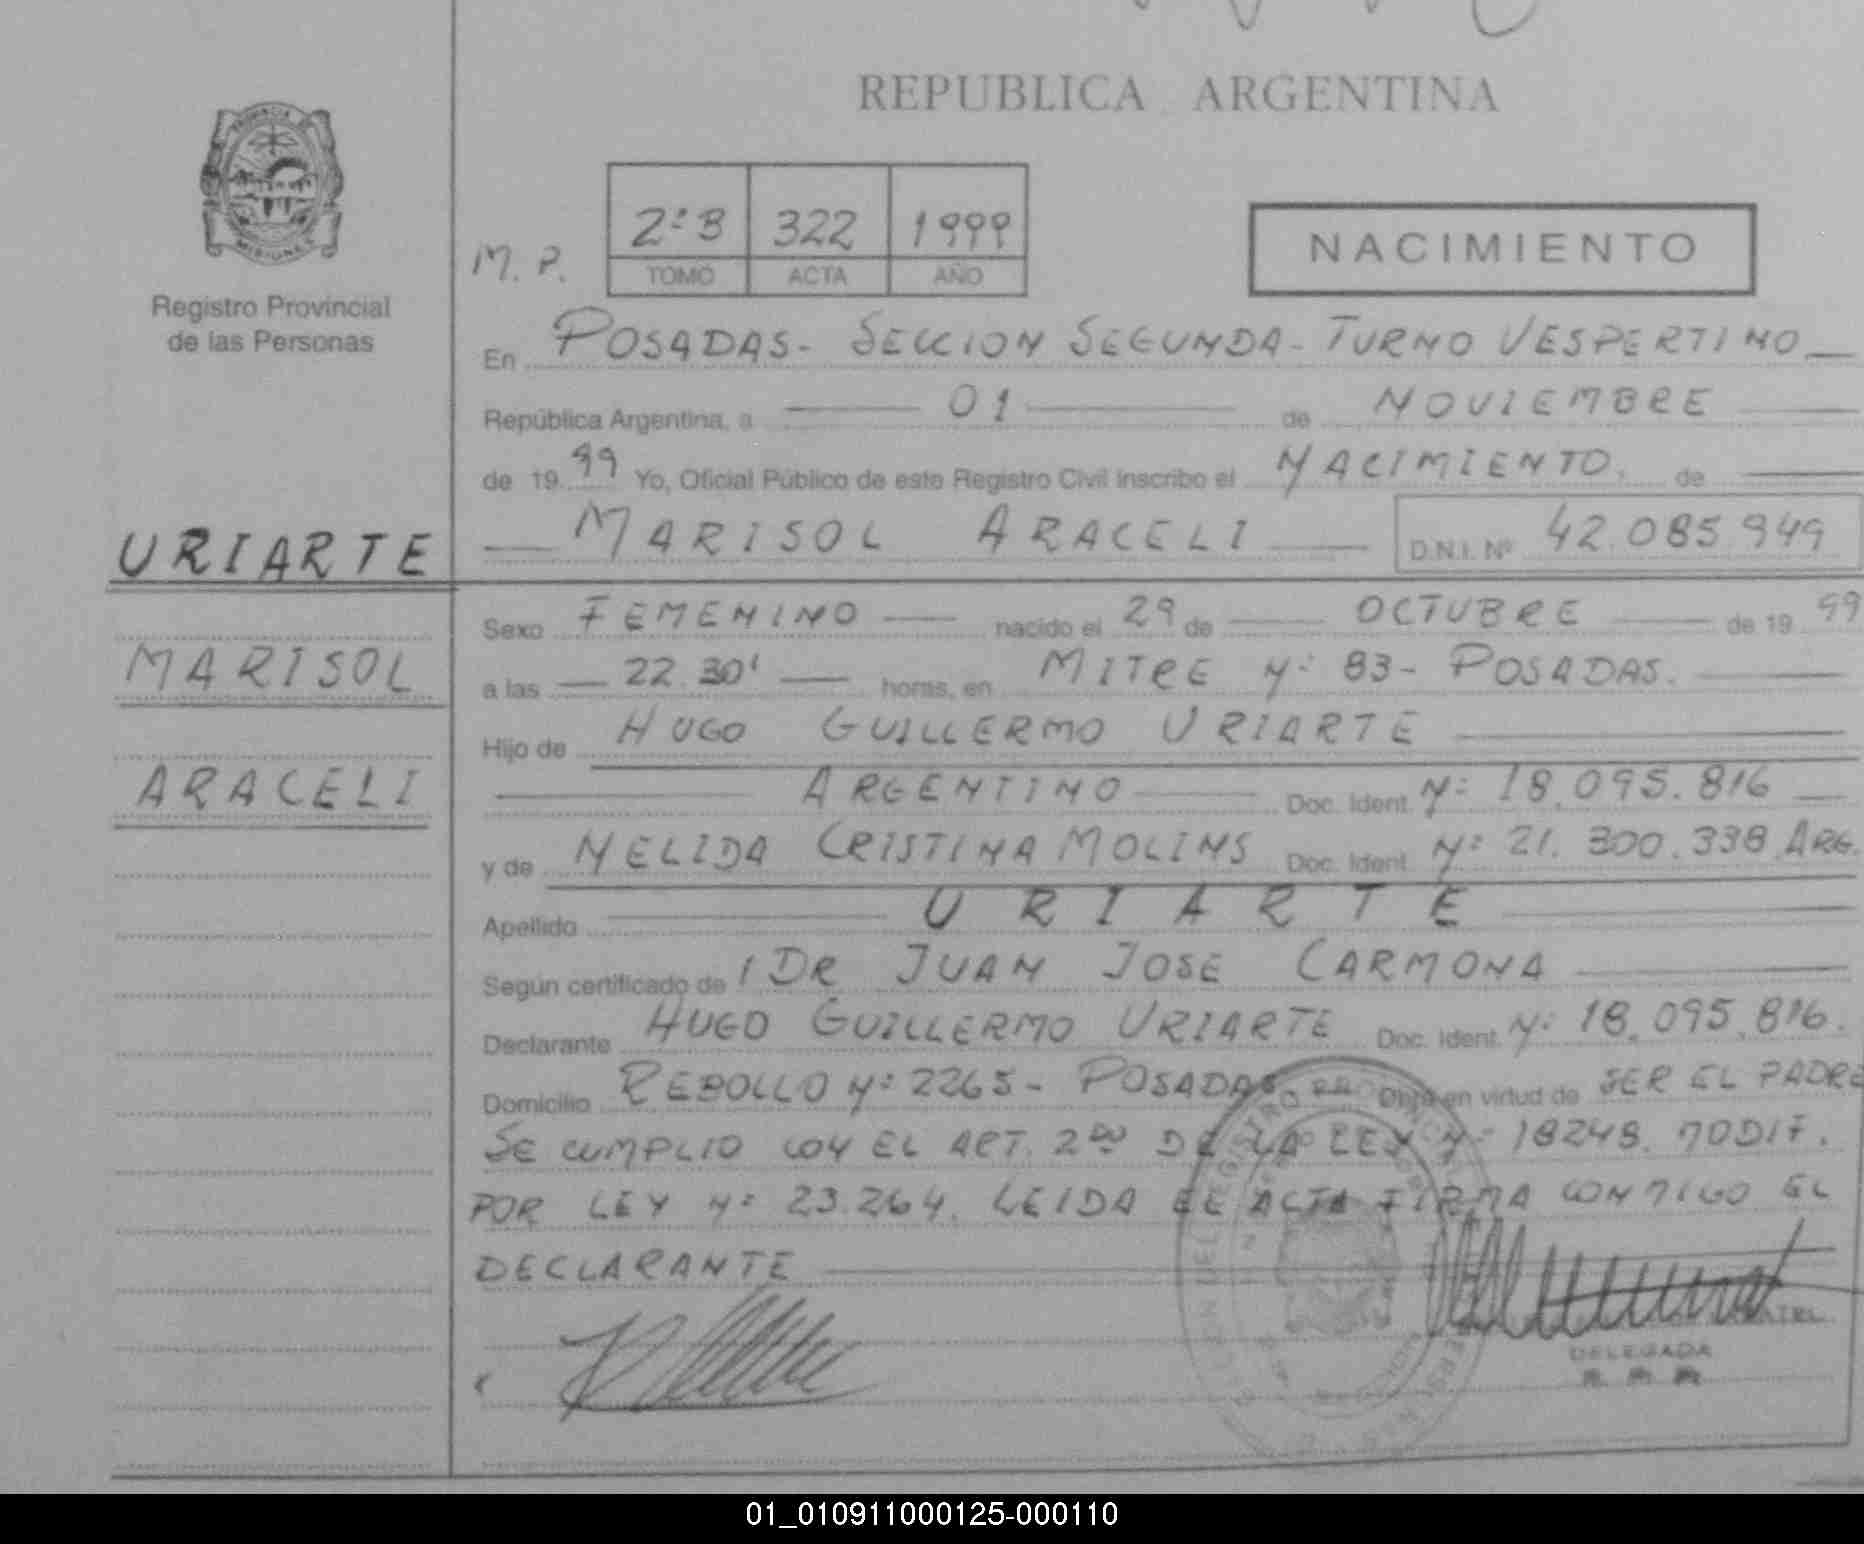 REPUBLICA ARGENTINA
PROVINCIA DE
MISIONES
Registro Provincial
de las Personas
M. P.
2º B 322 1999
TOMO ACTA AÑO
NACIMIENTO
En POSADAS - SECCION SEGUNDA - TURNO VESPERTINO
República Argentina, a 01 de NOVIEMBRE
de 19 99 Yo, Oficial Público de este Registro Civil inscribo el NACIMIENTO. de
URIARTE
MARISOL ARACELI D.N.I. Nº 42.085.949
Sexo FEMENINO nacido el 29 de OCTUBRE de 19 99
MARISOL
a las 22.30' horas, en MITRE Nº 83 - POSADAS.
Hijo de HUGO GUILLERMO URIARTE
ARACELI
ARGENTINO Doc. Ident. Nº 18.095.816
y de NELIDA CRISTINA MOLINS Doc. Ident. Nº 21.300.338 ARG.
Apellido URIARTE
Según certificado de DR JUAN JOSE CARMONA
Declarante HUGO GUILLERMO URIARTE Doc. Ident. Nº 18.095.816.
Domicilio REBOLLO Nº 2265 - POSADAS Obra en virtud de SER EL PADRE
SE CUMPLIO CON EL ART. 2do DE LA LEY Nº 18248. MODIF.
POR LEY Nº 23.264. LEIDA EL ACTA FIRMA CONMIGO EL
DECLARANTE
DELEGADA
01_010911000125-000110